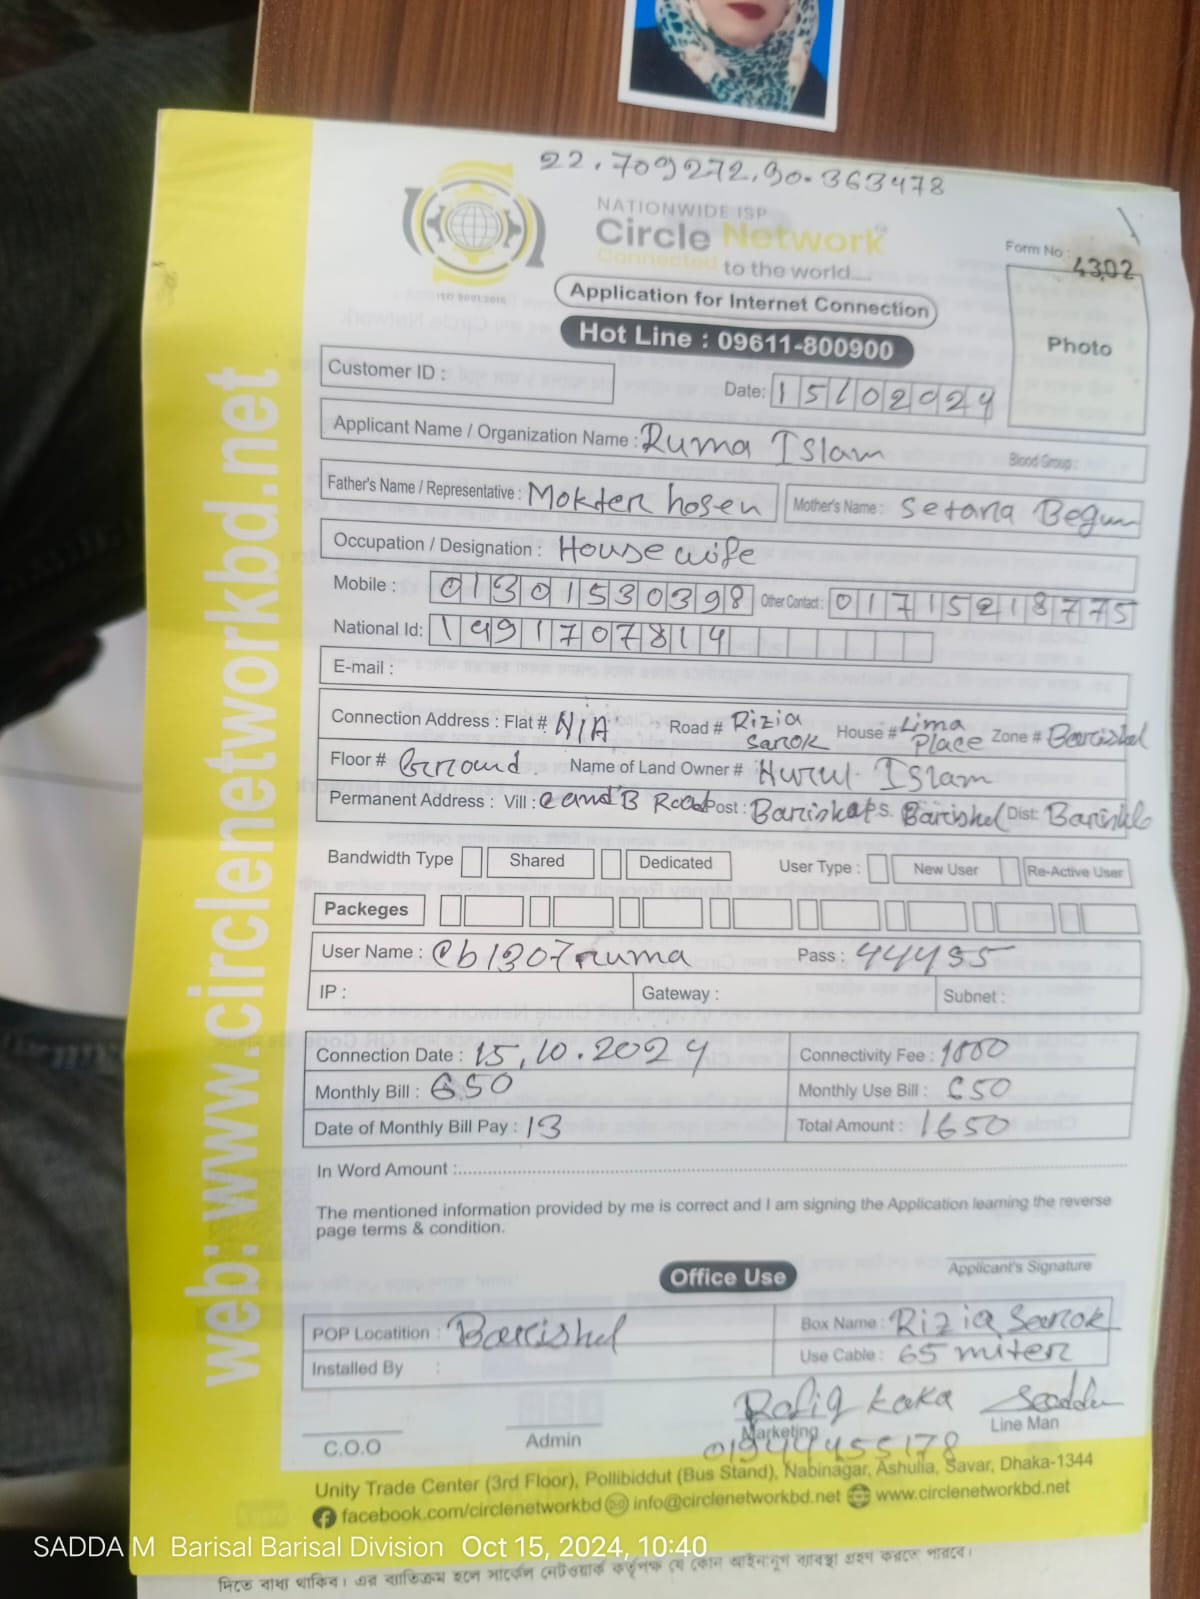 22.709272,90.363478
NATIONWIDE ISP
Circle Network
Connected to the world...
ISO 9001:2015
Form No : 4302
Application for Internet Connection
Hot Line : 09611-800900
Photo
Customer ID :
Date: 15102024
Applicant Name / Organization Name : Ruma Islam Blood Group :
Father's Name / Representative : Mokter hosen Mother's Name : Setara Begum
Occupation / Designation : House wife
Mobile : 01301530398 Other Contact : 01715218775
National Id: 1991707814
E-mail :
Connection Address : Flat # N/A Road # Rizia Sarok House # Lima Place Zone # Barishal
Floor # Ground. Name of Land Owner # Nurul Islam
Permanent Address : Vill : C and B Road Post : Barishal P.S. Barishal Dist: Barishal
Bandwidth Type Shared Dedicated User Type : New User Re-Active User
Packeges
User Name : @b1307ruma Pass : 44455
IP : Gateway : Subnet :
Connection Date : 15.10.2024 Connectivity Fee : 1000
Monthly Bill : 650 Monthly Use Bill : 650
Date of Monthly Bill Pay : 13 Total Amount : 1650
In Word Amount :
The mentioned information provided by me is correct and I am signing the Application learning the reverse
page terms & condition.
Applicant's Signature
Office Use
POP Locatition : Barishal Box Name : Rizia Sarok
Installed By : Use Cable : 65 miter
Rafiq kaka Saddam
C.O.O Admin Marketing Line Man
01944455178
Unity Trade Center (3rd Floor), Pollibiddut (Bus Stand), Nabinagar, Ashulia, Savar, Dhaka-1344
facebook.com/circlenetworkbd info@circlenetworkbd.net www.circlenetworkbd.net
web: www.circlenetworkbd.net
SADDA M Barisal Barisal Division Oct 15, 2024, 10:40
দিতে বাধ্য থাকিব। এর ব্যতিক্রম হলে সার্কেল নেটওয়ার্ক কর্তৃপক্ষ যে কোন আইনানুগ ব্যবস্থা গ্রহণ করতে পারবে।